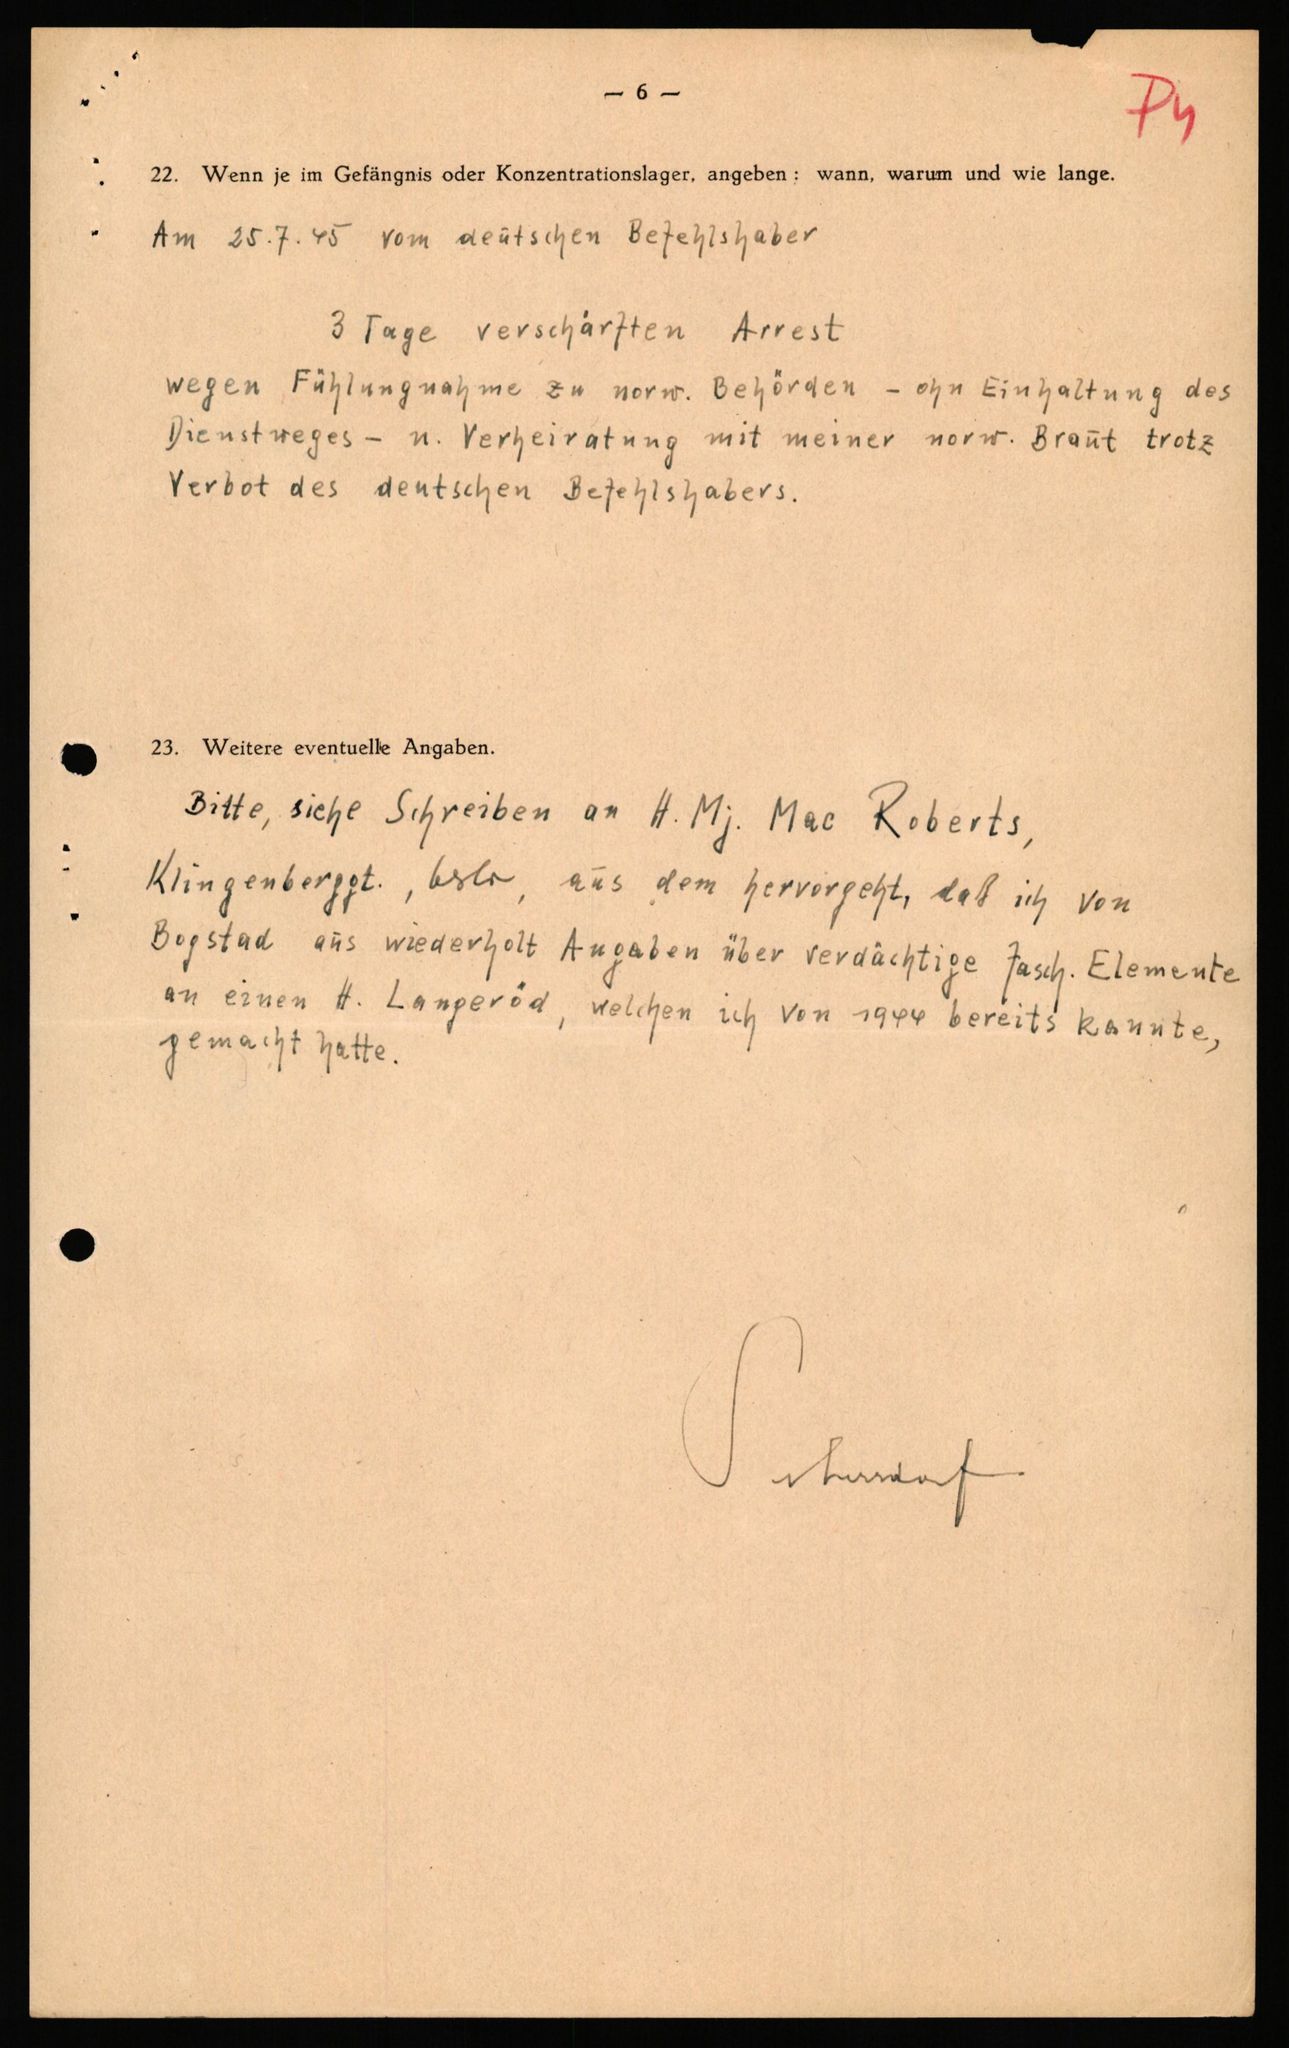 — 6 —
22. Wenn je im Gefängnis oder Konzentrationslager, angeben: wann, warum und wie lange.
Am 25.7.45 vom deutschen Befehlshaber
3 Tage verschärften Arrest
wegen Fühlungnahme zu norw. Behörden – ohn Einhaltung des
Dienstweges – u. Verheiratung mit meiner norw. Braut trotz
Verbot des deutschen Befehlshabers.
23. Weitere eventuelle Angaben.
Bitte, siehe Schreiben an H. Mj. Mac Roberts,
Klingenberggt., Oslo, aus dem hervorgeht, daß ich von
Bogstad aus wiederholt Angaben über verdächtige fasch. Elemente
an einen H. Langeröd, welchen ich von 1944 bereits kannte,
gemacht hatte.